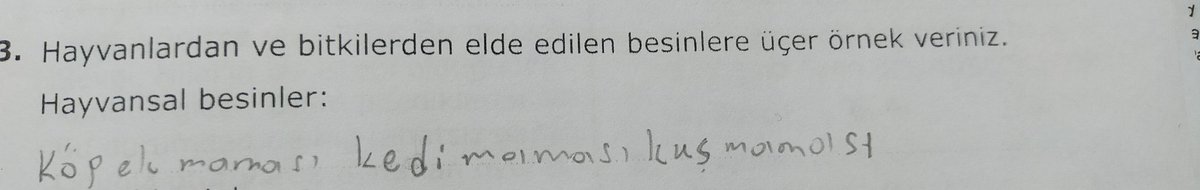 3. Hayvanlardan ve bitkilerden elde edilen besinlere üçer örnek veriniz.
Hayvansal besinler:
Köpek maması kedi maması kuş maması